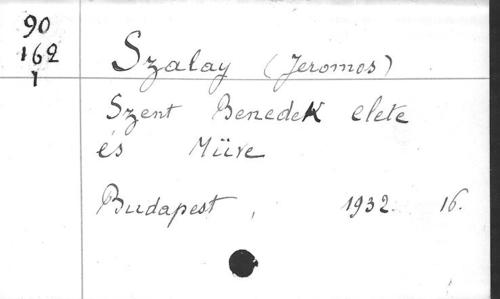 90
162
1
Szalay (Jeromos)
Szent Benedek elete
és Müve
Budapest, 1932. 16.